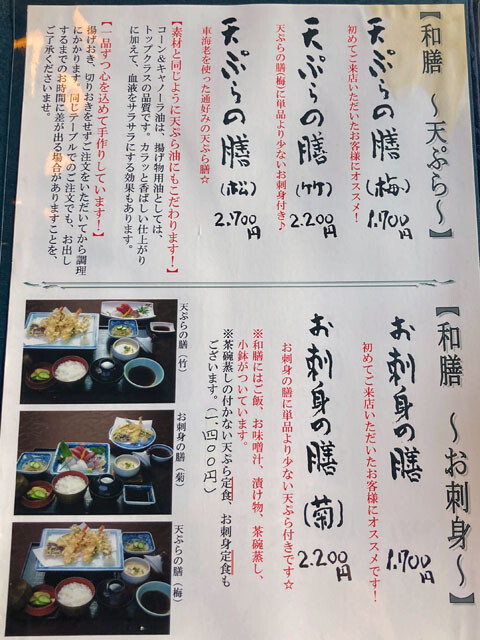 【和膳 ～天ぷら～】
天ぷらの膳(梅)
1.700円
初めてご来店いただいたお客様にオススメ！
天ぷらの膳(竹)
2.200円
天ぷらの膳(梅)に単品より少ないお刺身付き♪
天ぷらの膳(松)
2.700円
車海老を使った通好みの天ぷら膳☆
【素材と同じように天ぷら油にもこだわります！】
コーン＆キャノーラ油は、揚げ物用油としては、
トップクラスの品質です。カラッと香ばしい仕上がり
に加えて、血液をサラサラにする効果もあります。
【一品ずつ心を込めて手作りしています！】
揚げおき、切りおきをせずご注文をいただいてから調理
にかかります。同じテーブルでのご注文でも、お出し
するまでのお時間に差が出る場合がありますことを、
ご了承くださいませ。
【和膳 ～お刺身～】
お刺身の膳
1.700円
初めてご来店いただいたお客様にオススメです！
お刺身の膳(菊)
2.200円
お刺身の膳に単品より少ない天ぷら付きです☆
※和膳にはご飯、お味噌汁、漬け物、茶碗蒸し、
小鉢がついています。
※茶碗蒸しの付かない天ぷら定食、お刺身定食も
ございます。(一,四〇〇円)
天ぷらの膳（竹）
お刺身の膳（菊）
天ぷらの膳（梅）